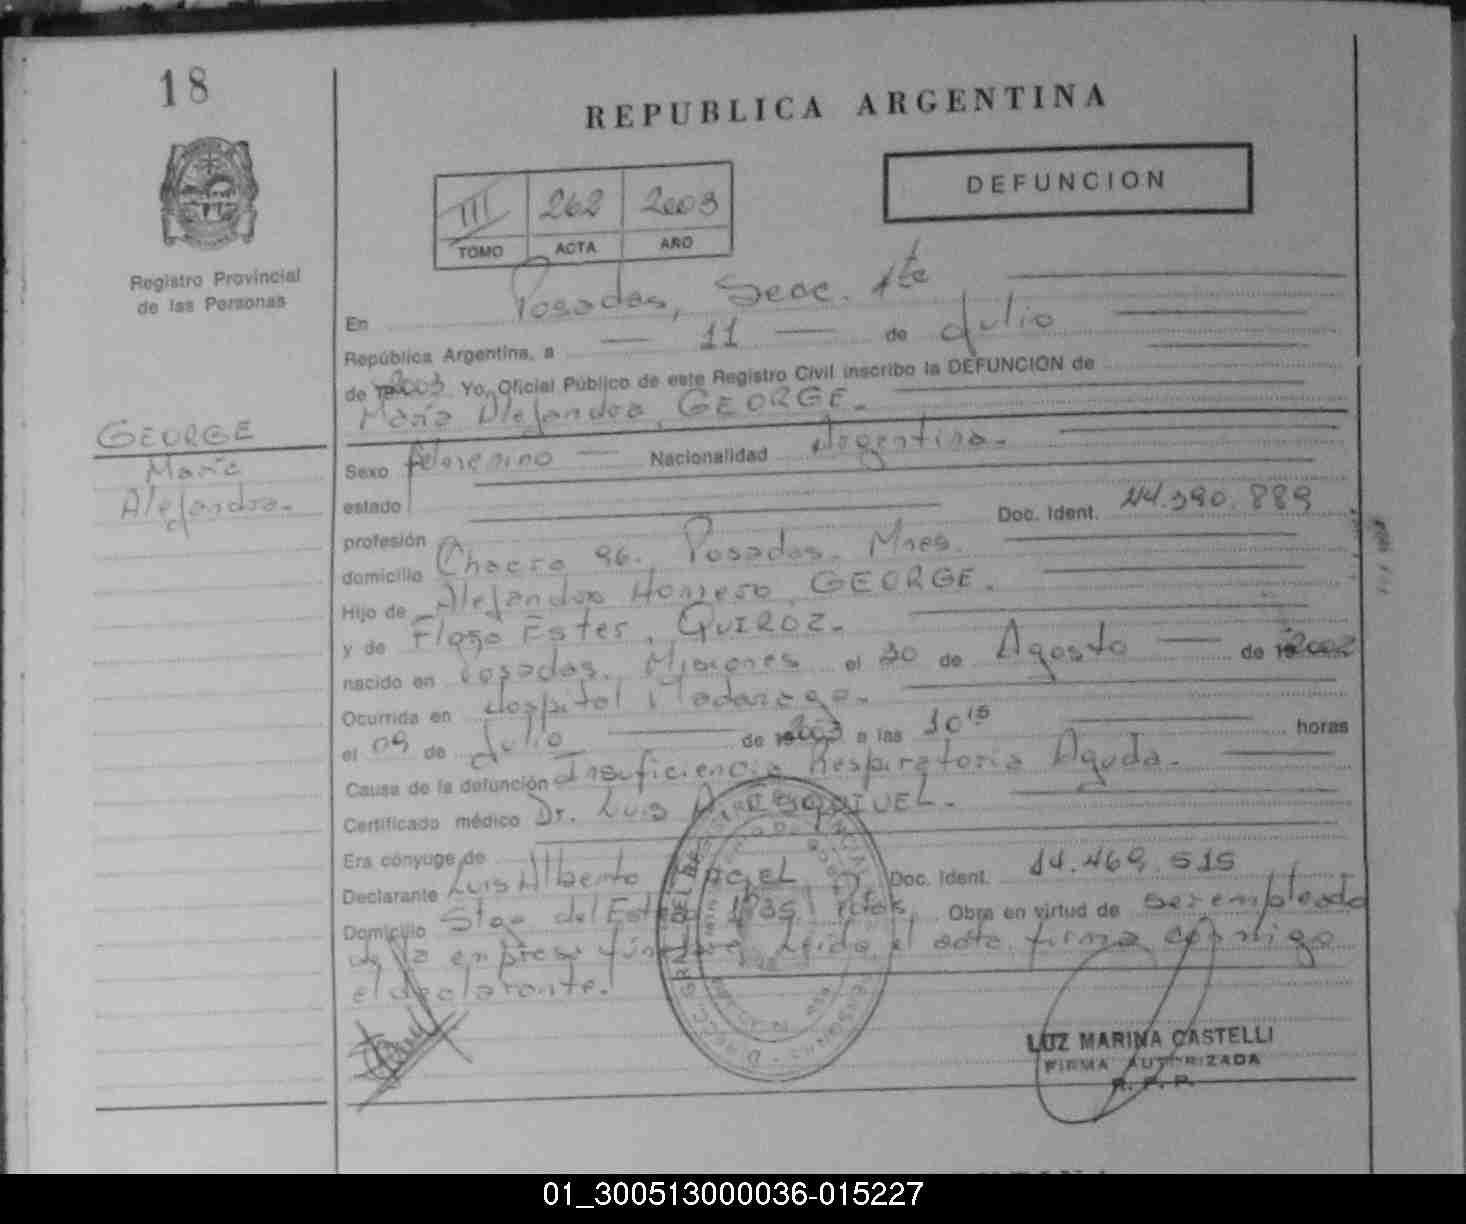 18
REPUBLICA ARGENTINA
Registro Provincial
de las Personas
III 262 2003
TOMO ACTA AÑO
DEFUNCION
En Posadas, Secc. 1te
República Argentina, a 11 de Julio
de 2003 Yo, Oficial Público de este Registro Civil inscribo la DEFUNCION de
María Alejandra, GEORGE.
GEORGE
María
Alejandra.
Sexo femenino Nacionalidad Argentina.
estado
profesión Doc. Ident. 44.390.889
domicilio Chacra 96. Posadas. Mnes.
Hijo de Alejandro Homero, GEORGE.
y de Ester, QUIROZ.
nacido en Posadas. Misiones el 30 de Agosto de 2002
Ocurrida en Hospital Madariaga.
el 09 de Julio de 2003 a las 10 15 horas
Causa de la defunción Insuficiencia Respiratoria Aguda.
Certificado médico Dr. Luis A. ESQUIVEL.
Era cónyuge de
Declarante Luis Alberto Doc. Ident. 14.469.515
Domicilio Stgo. del Estero Obra en virtud de ser empleado
de la empresa fúnebre, leída el acta, firma conmigo
el declarante.
LUZ MARINA CASTELLI
FIRMA AUTORIZADA
R. P. P.
01_300513000036-015227